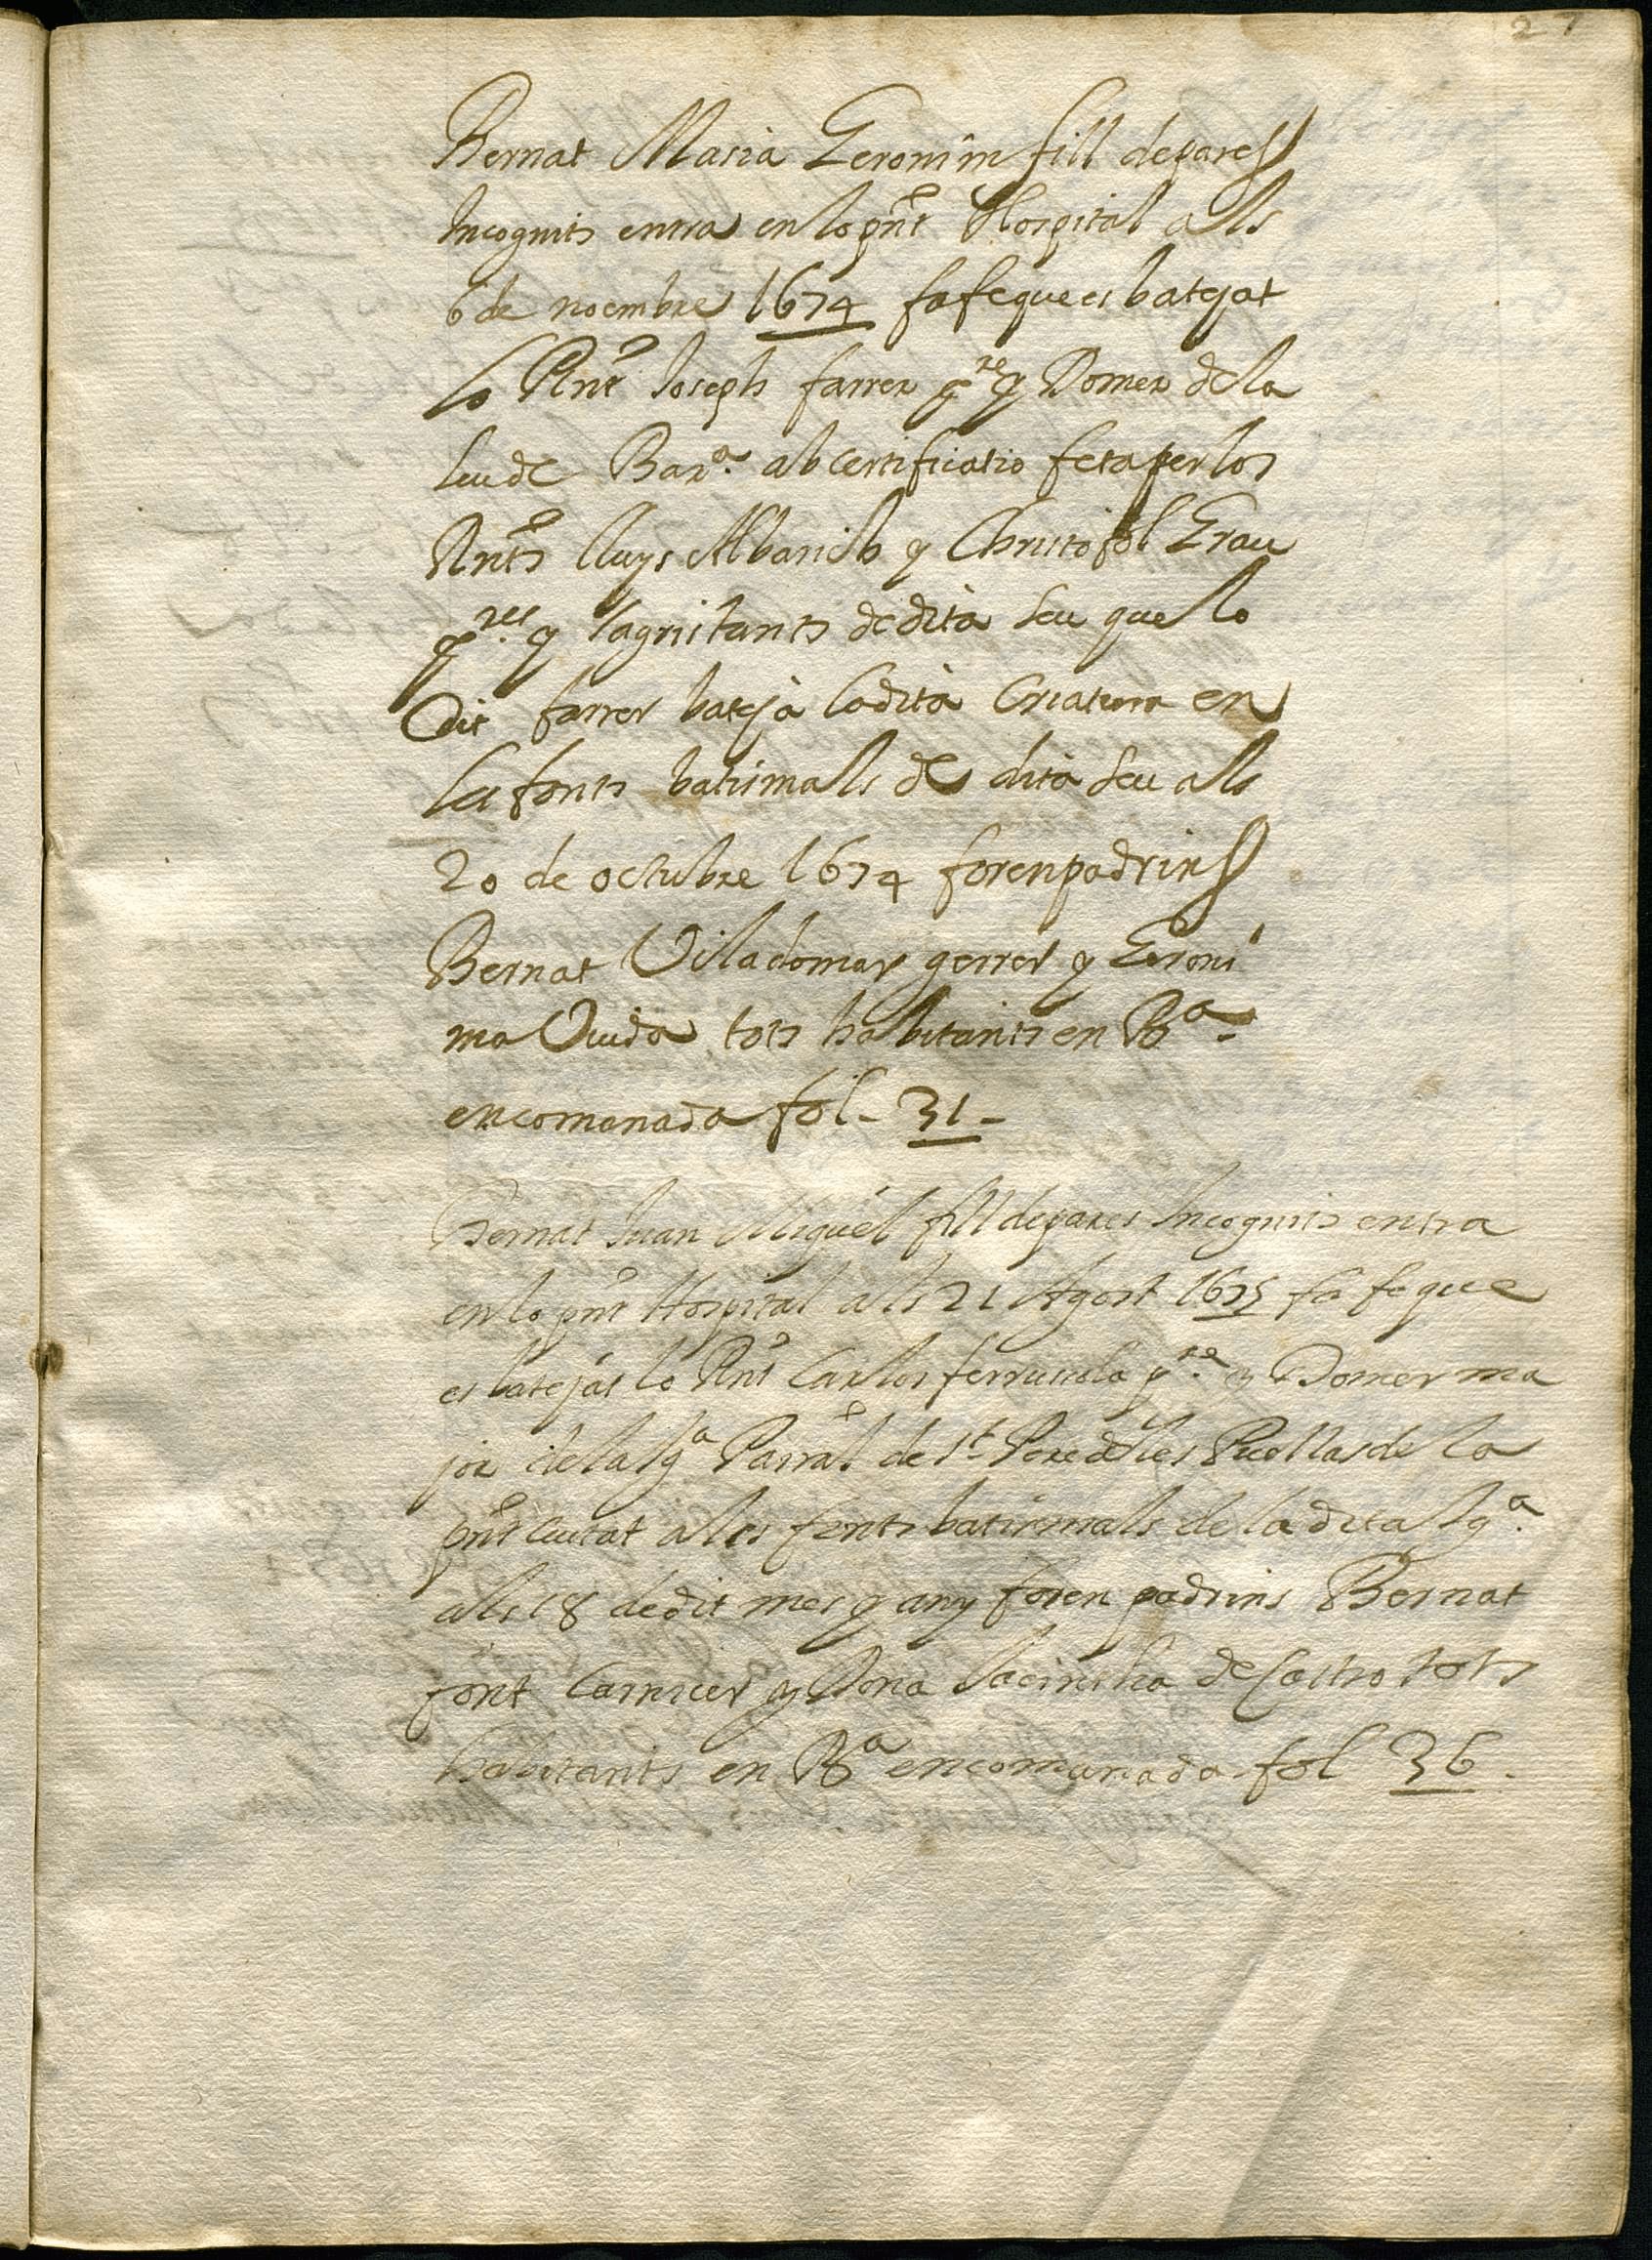 27
Bernat Maria Geronim fill de pares
Incognits entra en lo pnt Hospital als
6 de noembre 1674 fa fe que es batejat
lo Rnt Joseph farrer pre y Domer dela
seu de Barª ab certificatio feta per los
Rnts Lluys y Christofol Grau
pres y sagristants de dita seu que lo
Dit farrer batejà la dita Criatura en
les fonts batismals de dita seu als
20 de octubre 1674 foren padrins
Bernat Viladomar gerrer y Geroni
ma Viuda tots habitants en Bª
encomanada fol - 31 -
Bernat Juan Miguel fill de pares Incognits entra
en lo pnt Hospital als 21 Agost 1675 fa fe que
es batejat lo Rnt Carlos ferrussola pre y Domer ma
jor de la Igª Parral de St Pere de les Puellas de la
pnt Ciutat a les fonts batismals de la dita Igª
als 18 de dit mes y any foren padrins Bernat
font Carnicer y Dona Jacintha de Castro tots
habitants en Bª encomanada fol 36